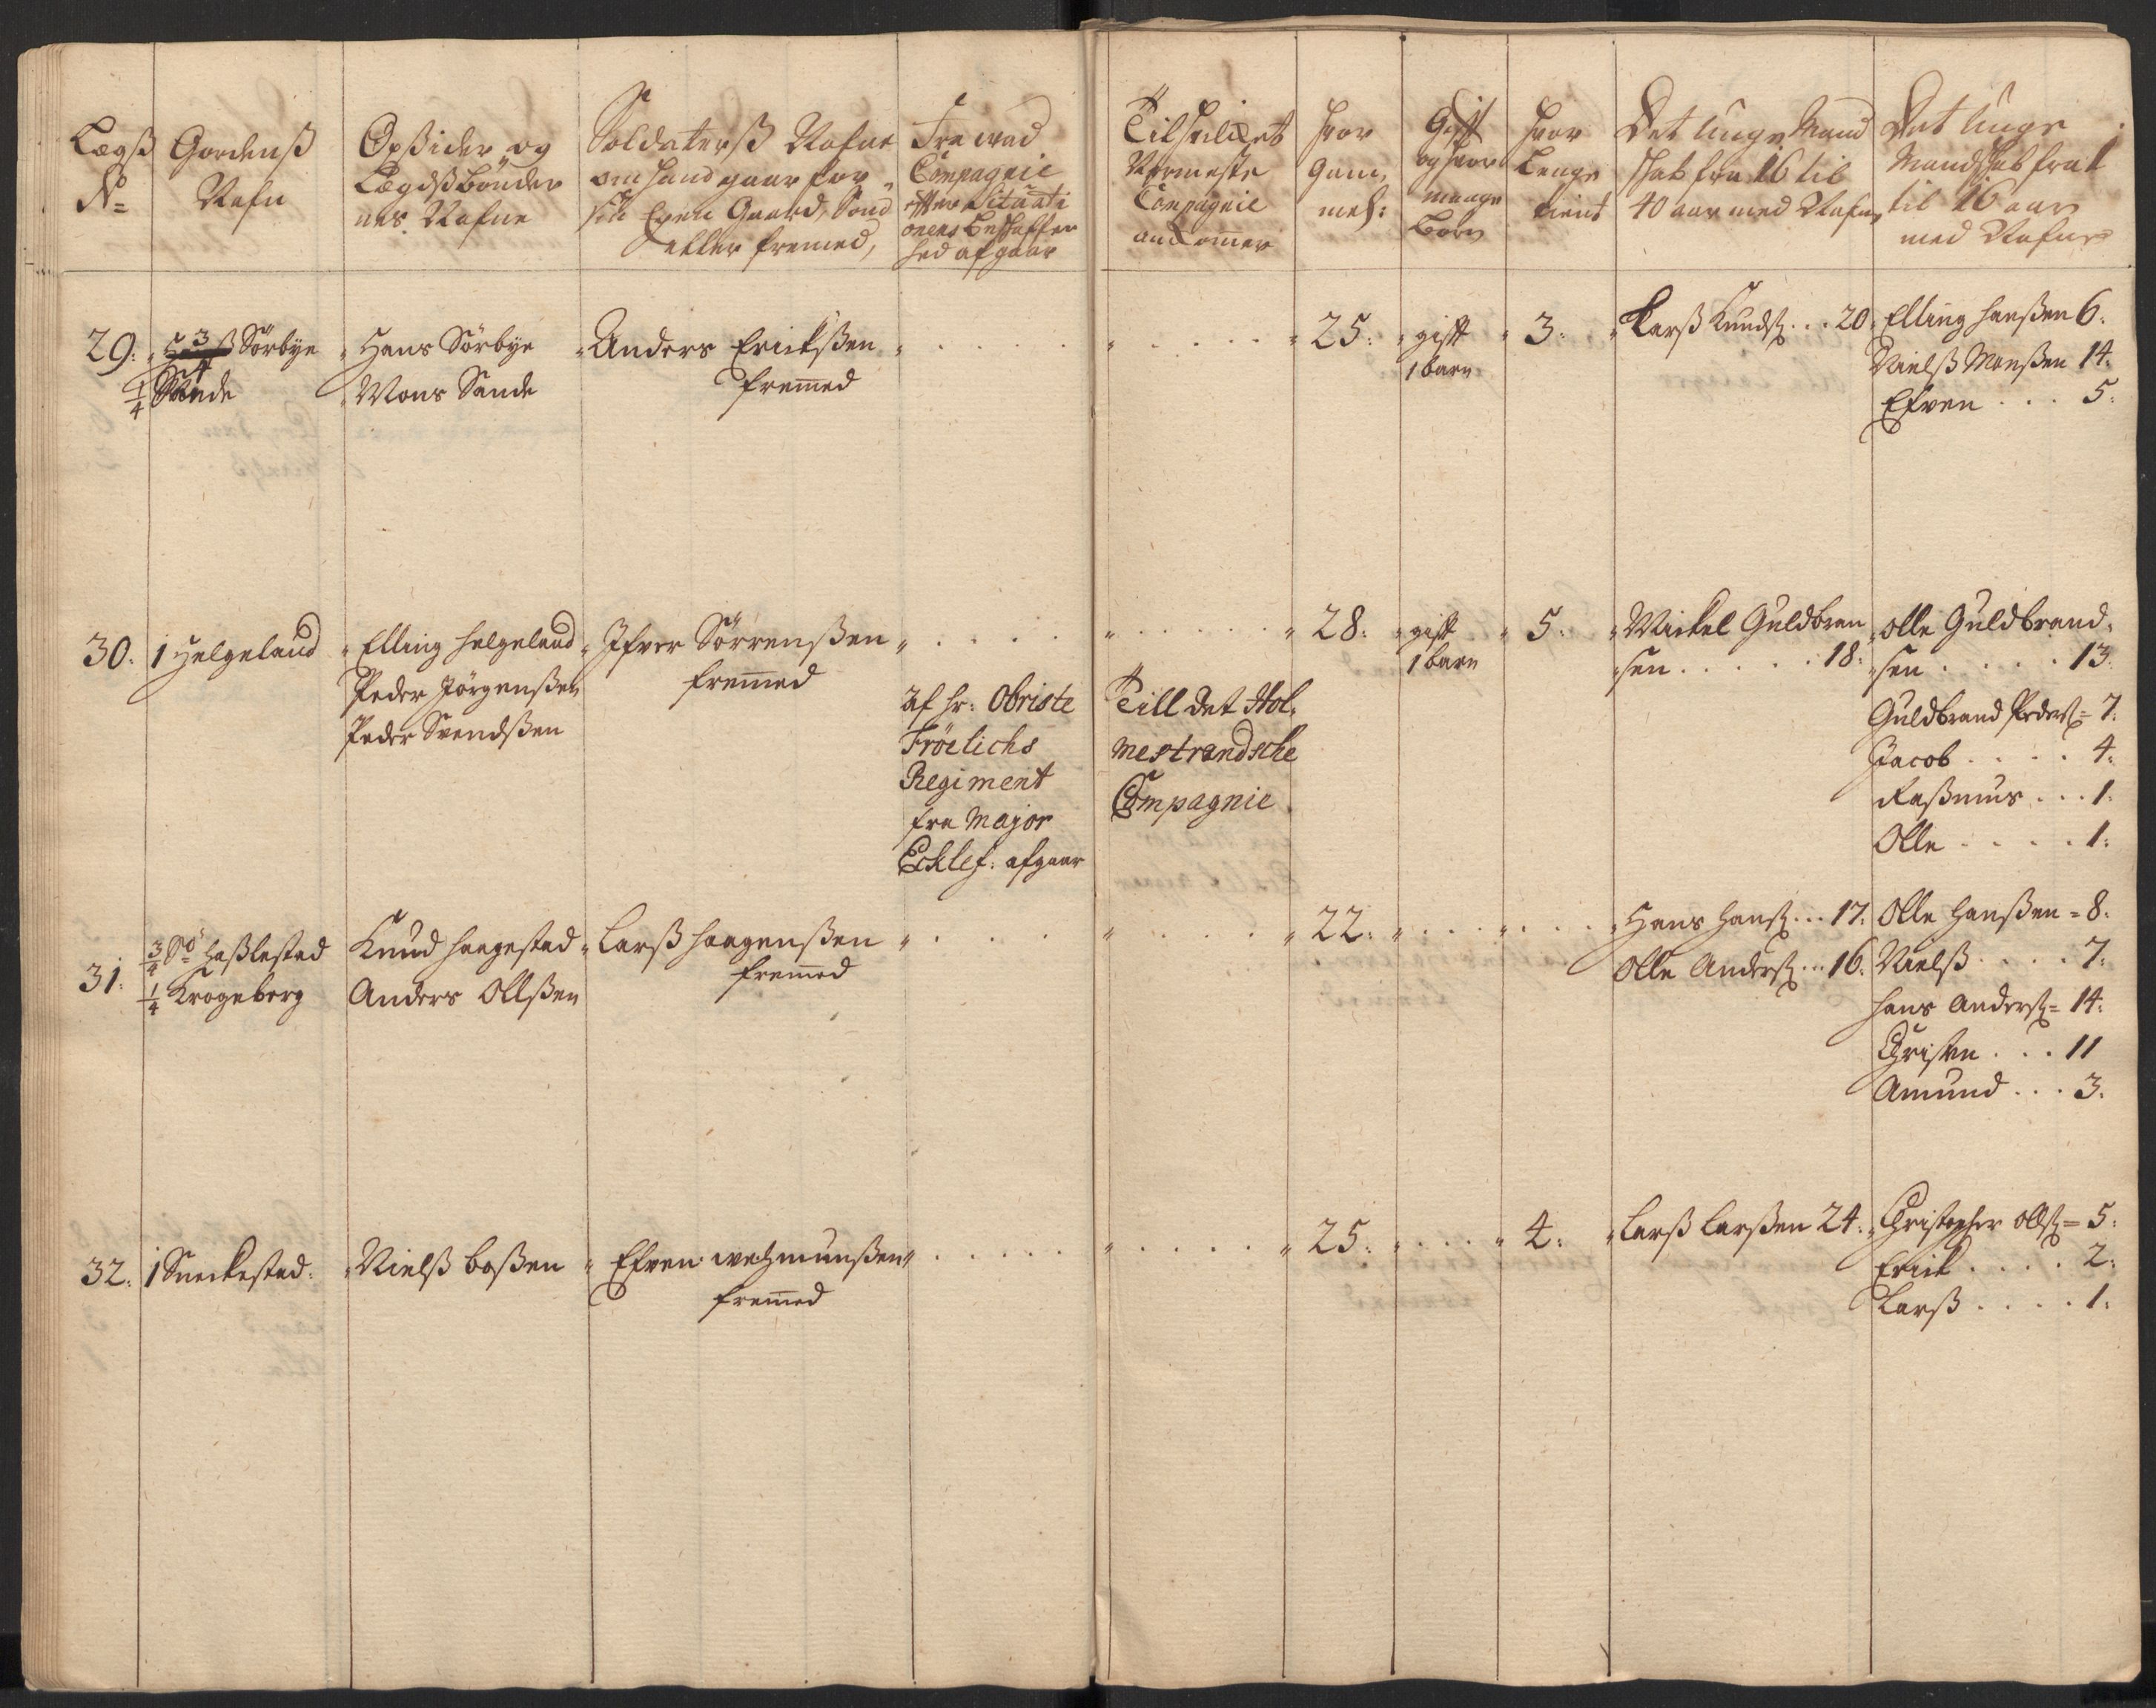 Lægß
No
Gordenß
Nafn
Opsider og
Lægdßbönder
nes Nafne
Soldaterß Nafne
om hand gaar for
sin Egen Gaard, Sönd
eller fremed,
Fra wad
Compagnie
effter Situati
onens Beskaffen
hed afgaar
Tilhvilcket
Nermeste
Compagnie
ankommer
hvor
gam,
mel:
Gifft
og hvor
mange
Börn
hvor
Lenge
tient
Det Unge Mand
skab fra 16 til
40 aar med Nafne
Det Unge
Mandskab fra 1
til 16 aar
med Nafne
29: Sörbye
1/4 Sande
Hans Sörbye
Mons Sande
Anders Erickßen
fremmed
25:
gifft
1 barn
3:
Larß Knudß. . . 20
Elling Hanßen 6:
Nielß Monßen 14:
Efven . . . 5:
30: 1 Helgeland
Elling Helgeland
Peder Jörgenßen
Peder Svendßen
Ifver Sörrenßen
fremmed
af Hr: Obriste
Fröelichs
Regiment
fra Major
Ecklef: afgaar
Till det Hol,
mestrandsche
Compagnie
28:
gifft
1 barn
5:
Mickel Guldbran
sen . . . . . 18:
Olle Guldbrand,
sen . . . . . 13:
Guldbrand Pederß = 7:
Jacob . . . . 4:
Raßmus . . . 1:
Olle . . . . 1:
31: 3/4 Sö Haßlestad
1/4 Krogeberg
Knud Haagestad
Anders Ollßen
Larß Haagenßen
fremmed
22:
Hans Hanß . . . 17:
Olle Anderß . . . 16:
Olle Hanßen = 8:
Nielß . . . . 7:
Hans Anderß = 14:
Christen . . . 11
Amund . . . 3:
32: 1 Sneckestad:
Nielß Boßen
Efven Wehmunßen
fremmed
25:
4:
Larß Larßen 24:
Christopher Ollß = 5:
Erick . . . . 2:
Larß . . . . 1: